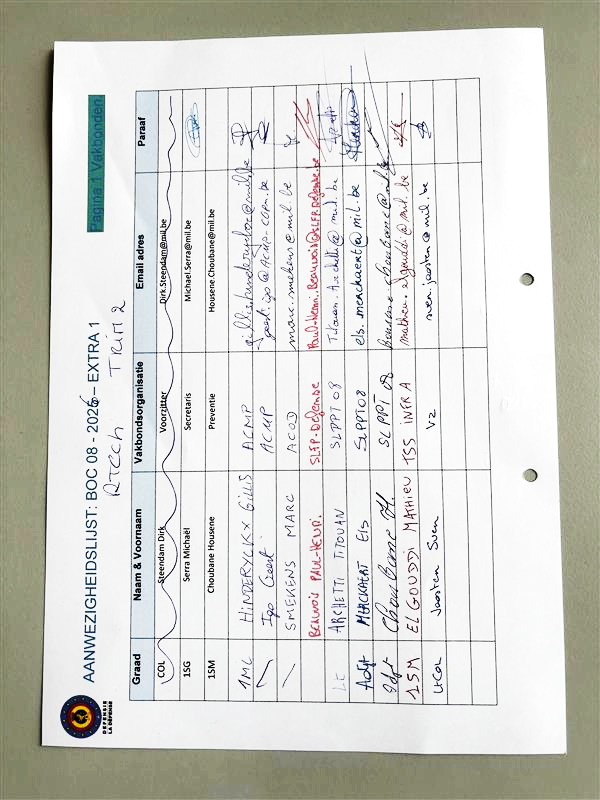 DEFENSIE
LA DEFENSE
AANWEZIGHEIDSLIJST: BOC 08 - 2026 – EXTRA 1
Pagina 1 Vakbonden
RTECH TRIM 2
Graad Naam & Voornaam Vakbondsorganisatie Email adres Paraaf
COL Steendam Dirk Voorzitter Dirk.Steendam@mil.be
1SG Serra Michaël Secretaris Michael.Serra@mil.be
1SM Choubane Housene Preventie Housene.Choubane@mil.be
1MC HINDERYCKX GILLIS ACMP gillis.hinderyckx@mil.be
Igo Geert ACMP geert.igo@ACMP-CGPM.be
SMEKENS MARC ACOD marc.smekens@mil.be
BEAUVOIS PAUL-HENRI SLFP-Defense Paul-Henri.Beauvois@SLFPDefense.be
LT ARCHETTI TITOUAN SLPPT 08 Titouan.Archetti@mil.be
Adjt MERCKAERT Els SLPPT08 els.merckaert@mil.be
Adjt Choubane H. SLPPT 08 housene.choubane@mil.be
1SM ELGOUDDI MATHIEU TSS INFRA mathieu.elgouddi@mil.be
LtCOL Jaasten Sven V2 sven.jaasten@mil.be